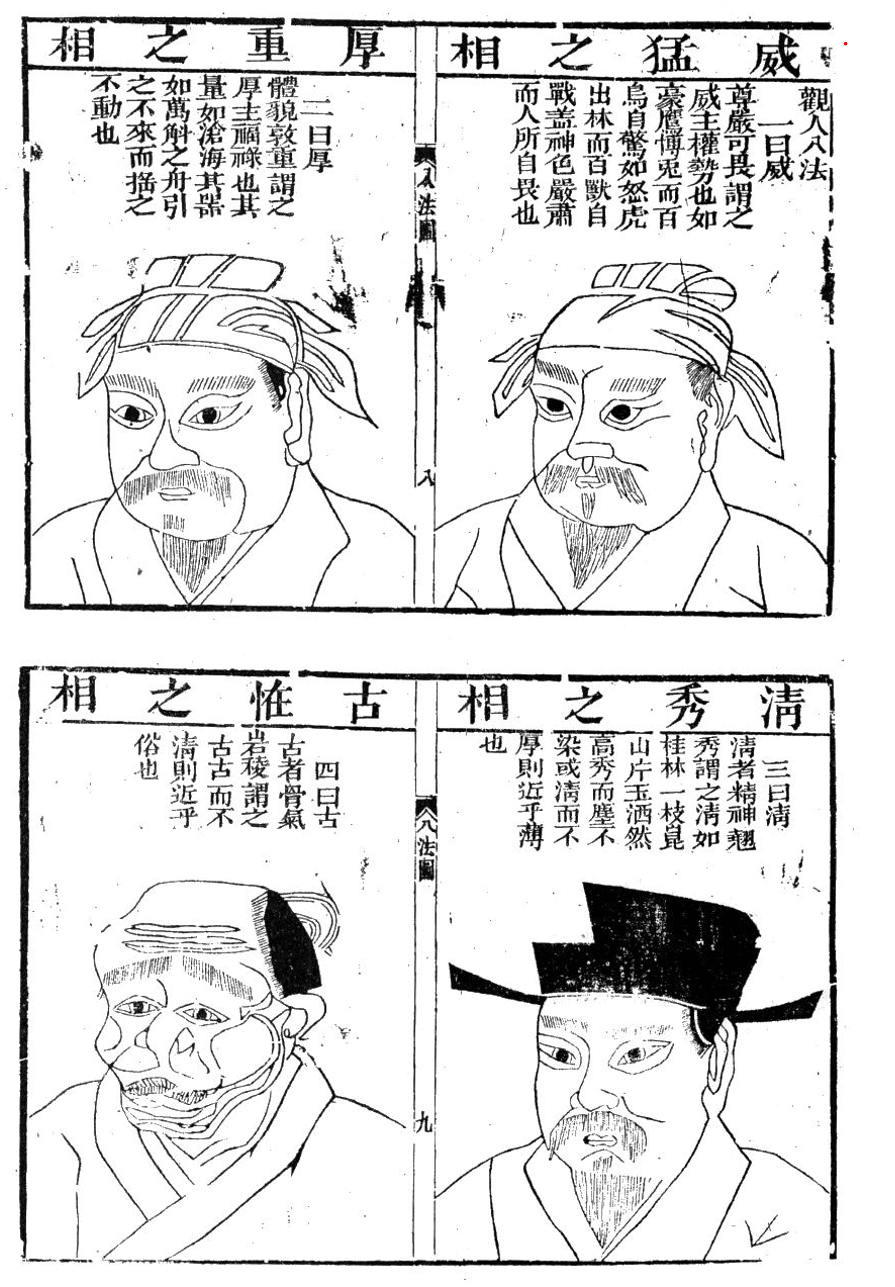 威猛之相
觀人八法
一曰威
尊嚴可畏謂之
威主權勢也如
豪鷹博兎而百
鳥自驚如怒虎
出林而百獸自
戰盖神色嚴肅
而人所自畏也
厚重之相
二曰厚
體貌敦重謂之
厚主福祿也其
量如滄海其器
如萬斛之舟引
之不來而搖之
不動也
八法圖
八
清秀之相
三曰清
清者精神翹
秀謂之清如
桂林一枝崑
山片玉洒然
高秀而塵不
染或清而不
厚則近乎薄
也
古恠之相
四曰古
古者骨氣
岩稜謂之
古古而不
清則近乎
俗也
八法圖
九